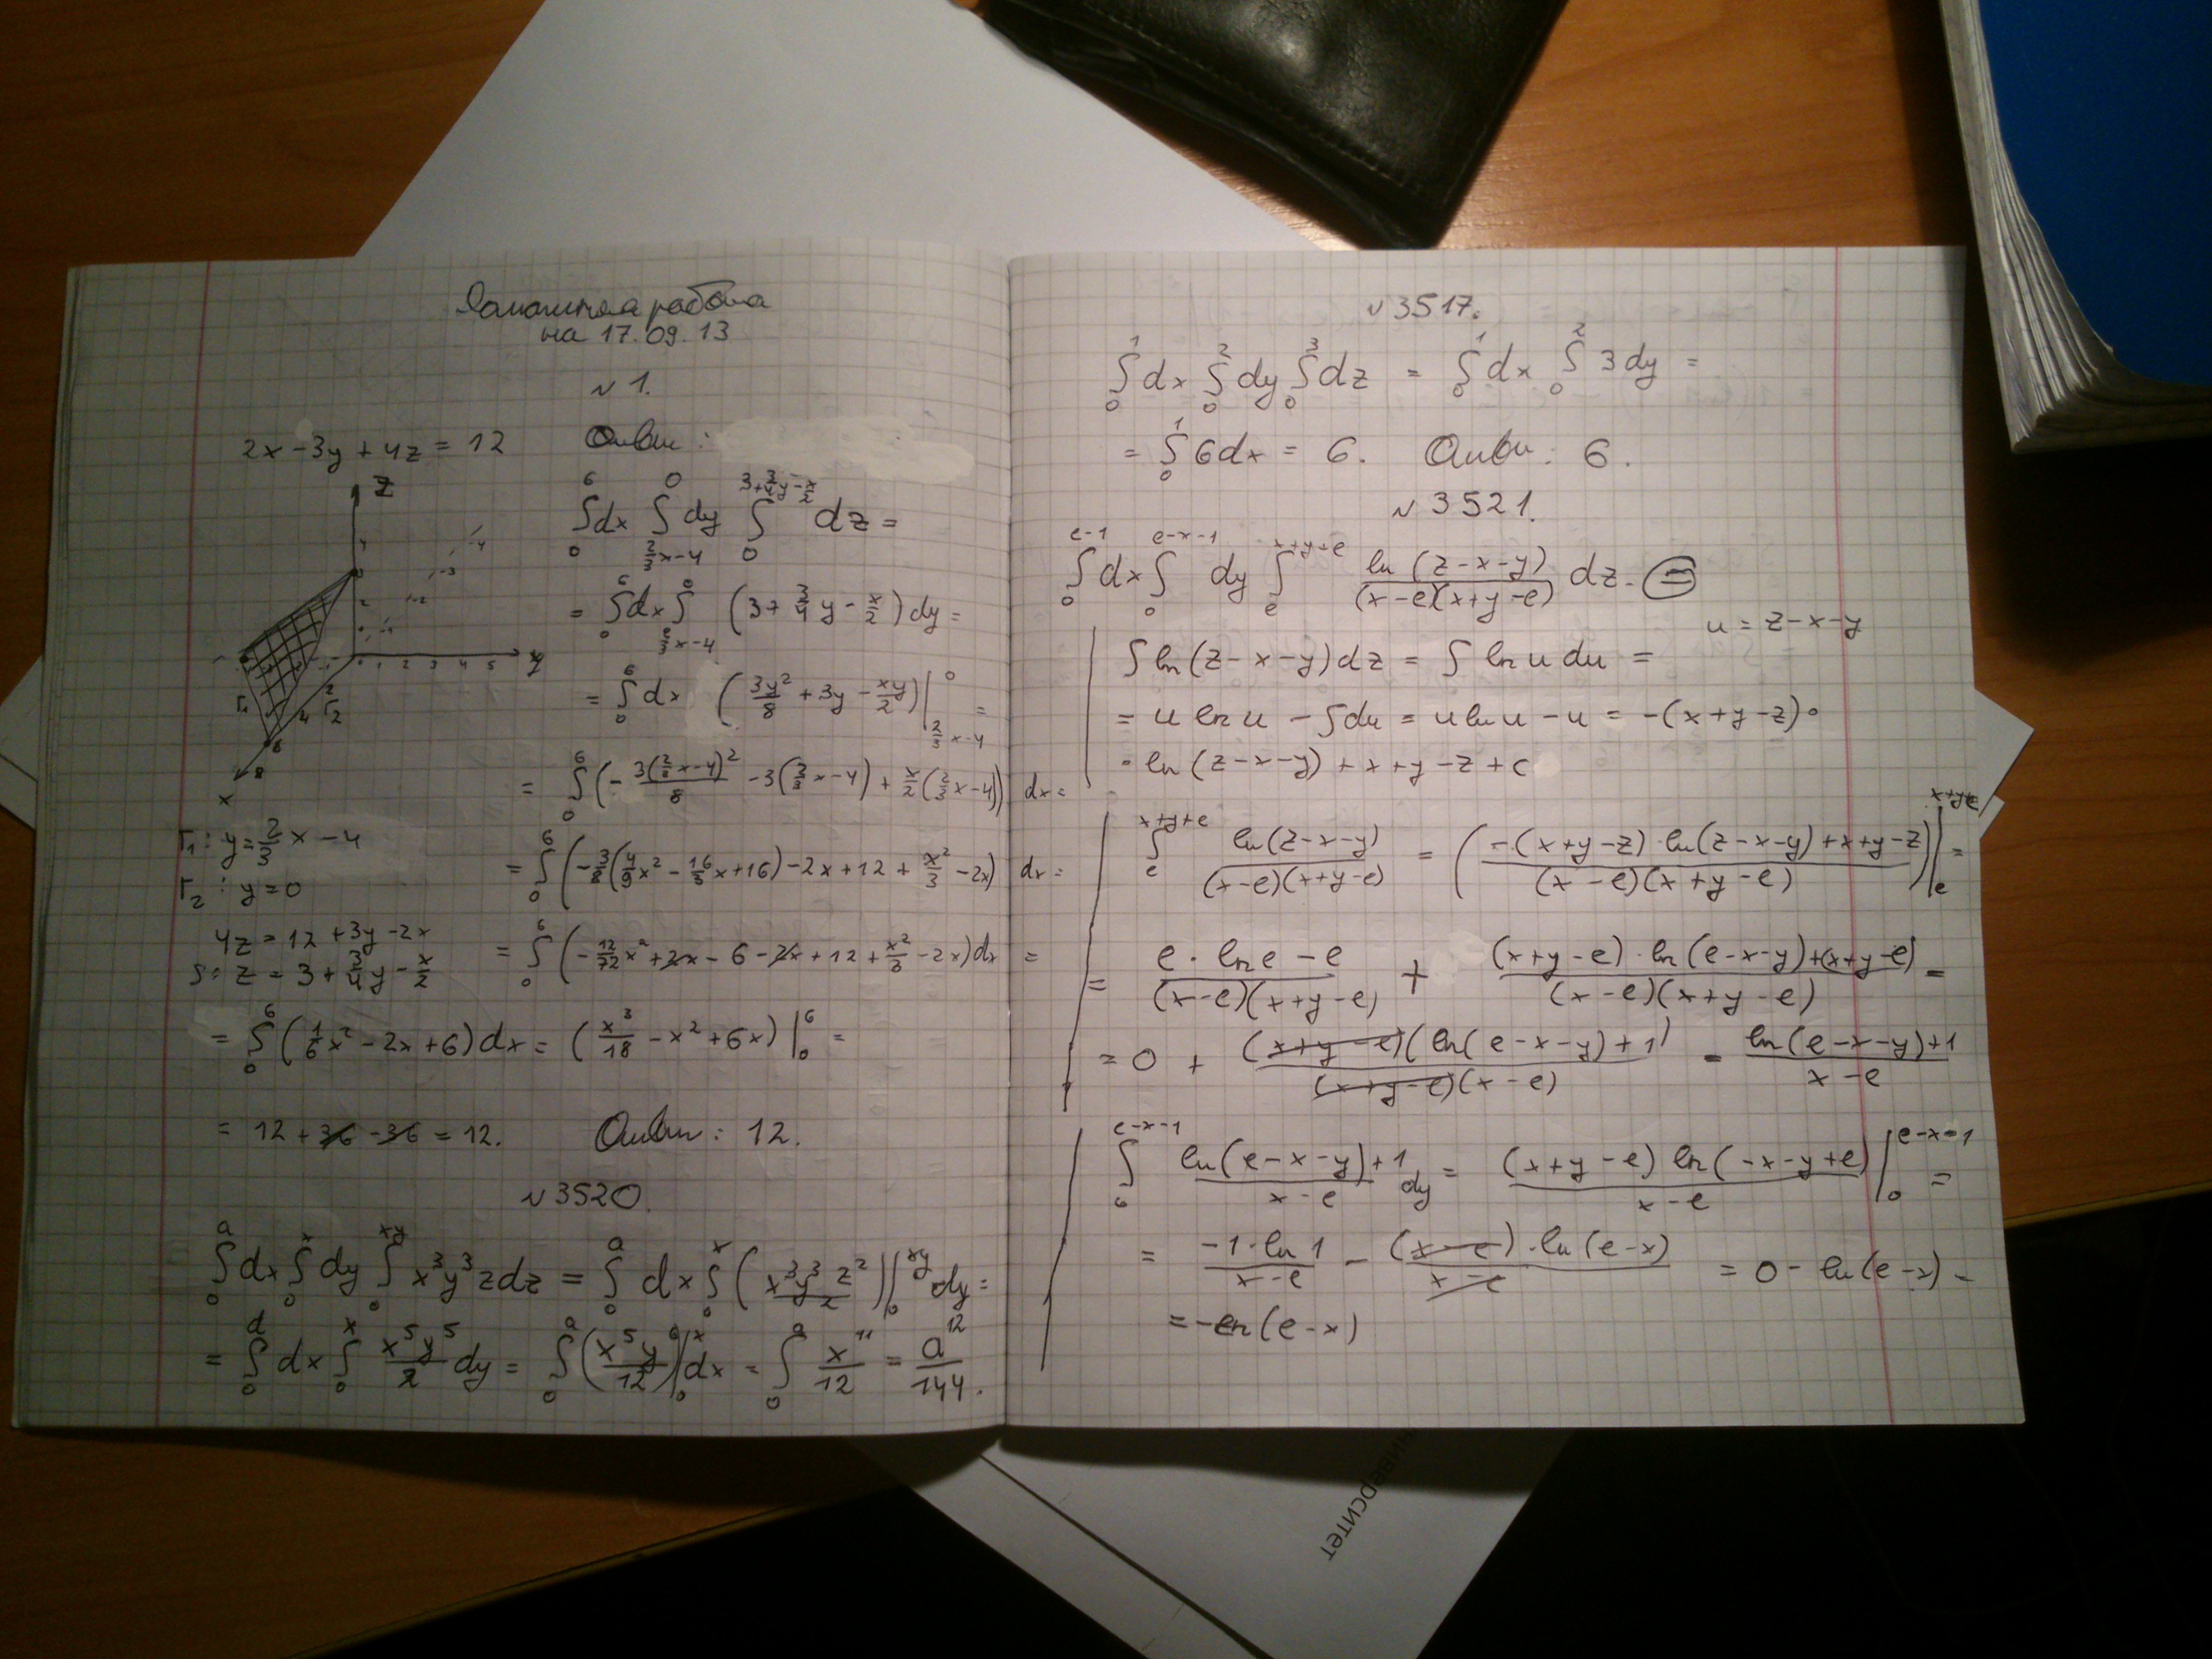 Домашняя работа
на 17.09.13
№ 1.
2x - 3y + 4z = 12 Ответ:
z
y
x
1 2 3 4 5
Γ₁
Γ₂
∫₀⁶ dx ∫_{2/3 x-4}^0 dy ∫₀^{3+3/4 y - x/2} dz =
= ∫₀⁶ dx ∫_{2/3 x-4}^0 (3 + 3/4 y - x/2) dy =
= ∫₀⁶ dx (3y²/8 + 3y - xy/2) |_{2/3 x-4}^0 =
= ∫₀⁶ (- 3(2/3 x-4)²/8 - 3(2/3 x-4) + x/2 (2/3 x-4)) dx =
Γ₁: y = 2/3 x - 4
Γ₂: y = 0
= ∫₀⁶ (-3/8 (4/9 x² - 16/3 x + 16) - 2x + 12 + x²/3 - 2x) dx =
4z = 12 + 3y - 2x
S: z = 3 + 3/4 y - x/2
= ∫₀⁶ (-12/72 x² + 2x - 6 - 2x + 12 + x²/3 - 2x) dx =
= ∫₀⁶ (1/6 x² - 2x + 6) dx = (x³/18 - x² + 6x) |₀⁶ =
= 12 + 36 - 36 = 12. Ответ: 12.
№ 3520.
∫₀^a dx ∫₀^x dy ∫₀^{xy} x³y³z dz = ∫₀^a dx ∫₀^x (x³y³z²/2) |₀^{xy} dy =
= ∫₀^a dx ∫₀^x x⁵y⁵/2 dy = ∫₀^a (x⁵y⁶/12) |₀^x dx = ∫₀^a x¹¹/12 = a¹²/144.
№ 3517.
∫₀¹ dx ∫₀² dy ∫₀³ dz = ∫₀¹ dx ∫₀² 3 dy =
= ∫₀¹ 6dx = 6. Ответ: 6.
№ 3521.
∫₀^{e-1} dx ∫₀^{e-x-1} dy ∫_e^{x+y+e} ln(z-x-y)/((x-e)(x+y-e)) dz =
u = z-x-y
∫ ln(z-x-y) dz = ∫ ln u du =
= u ln u - ∫ du = u ln u - u = -(x+y-z) ·
· ln(z-x-y) + x + y - z + c
∫_e^{x+y+e} ln(z-x-y)/((x-e)(x+y-e)) = (-(x+y-z) · ln(z-x-y) + x+y-z)/((x-e)(x+y-e)) |_e^{x+y+e} =
= (e · ln e - e)/((x-e)(x+y-e)) + ((x+y-e) · ln(e-x-y) + (x+y-e))/((x-e)(x+y-e)) =
= 0 + (x+y-e)(ln(e-x-y)+1)/((x+y-e)(x-e)) = (ln(e-x-y)+1)/(x-e)
∫₀^{e-x-1} (ln(e-x-y)+1)/(x-e) dy = (x+y-e) ln(-x-y+e)/(x-e) |₀^{e-x-1} =
= -1·ln 1/(x-e) - (x-e)·ln(e-x)/(x-e) = 0 - ln(e-x) =
= -ln(e-x)
ниверситет